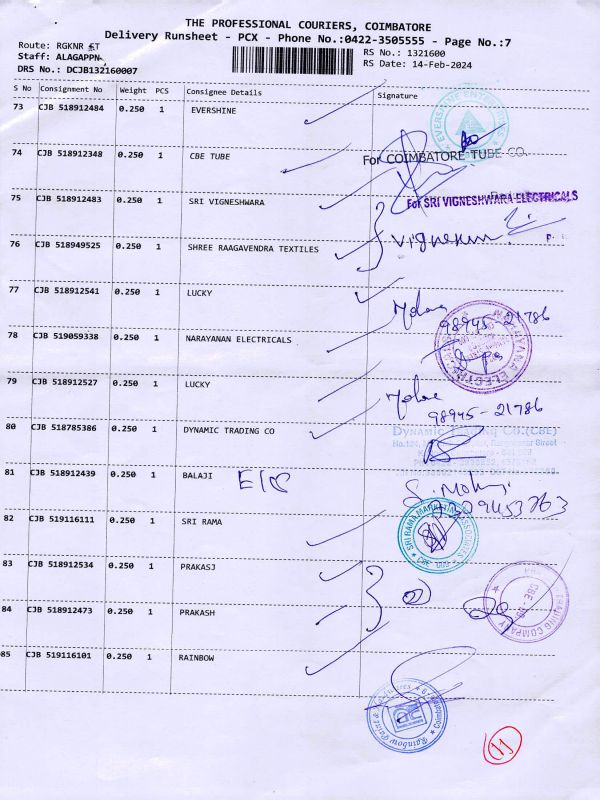 THE PROFESSIONAL COURIERS, COIMBATORE
Delivery Runsheet - PCX - Phone No.:0422-3505555 - Page No.:7
Route: RGKNR ST
RS No.: 1321600
Staff: ALAGAPPN
RS Date: 14-Feb-2024
DRS No.: DCJB132160007
S No Consignment No Weight PCS Consignee Details Signature
73 CJB 518912484 0.250 1 EVERSHINE
74 CJB 518912348 0.250 1 CBE TUBE
For COIMBATORE TUBE CO.
75 CJB 518912483 0.250 1 SRI VIGNESHWARA
For SRI VIGNESHWARA ELECTRICALS
76 CJB 518949525 0.250 1 SHREE RAAGAVENDRA TEXTILES
77 CJB 518912541 0.250 1 LUCKY
98945-21786
78 CJB 519059338 0.250 1 NARAYANAN ELECTRICALS
79 CJB 518912527 0.250 1 LUCKY
98945-21786
80 CJB 518785386 0.250 1 DYNAMIC TRADING CO
DYNAMIC TRADING CO.(CBE)
81 CJB 518912439 0.250 1 BALAJI
82 CJB 519116111 0.250 1 SRI RAMA
SRI RAMA MARKETING ASSOCIATES
83 CJB 518912534 0.250 1 PRAKASJ
84 CJB 518912473 0.250 1 PRAKASH
TRADING COMPANY
85 CJB 519116101 0.250 1 RAINBOW
11